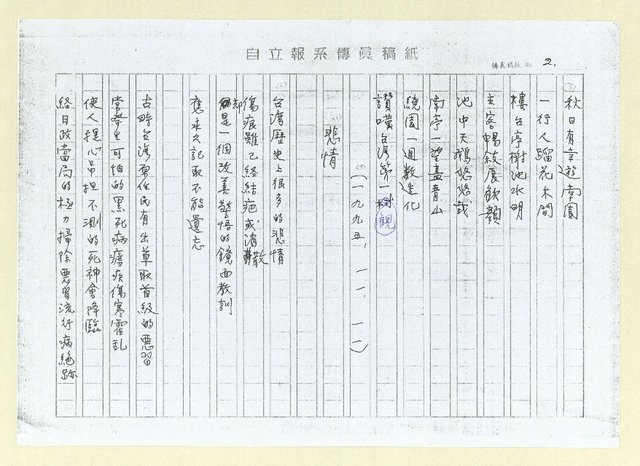 自立報系傳眞稿紙
傳眞稿紙 No. 2.
秋日有言遊南園
一行人蹓花木間
樓台亭榭池水明
主客暢敘展歡顏
池中天鵝悠悠哉
南亭一望盡青山
繞園一週數造化
讚嘆台灣第一觀
(一九九五、一一、一一)
悲情
台灣歷史上很多的悲情
傷痕雖已經結疤或消散
却是一個改善警悟的鏡面教訓
應永久記取不能遺忘
古時台灣原住民有出草取首級的惡習
常發生可怕的黑死病瘧疾傷寒霍乱
使人提心吊胆不測的死神會降臨
經日政當局的極力掃除惡習流行病絕跡